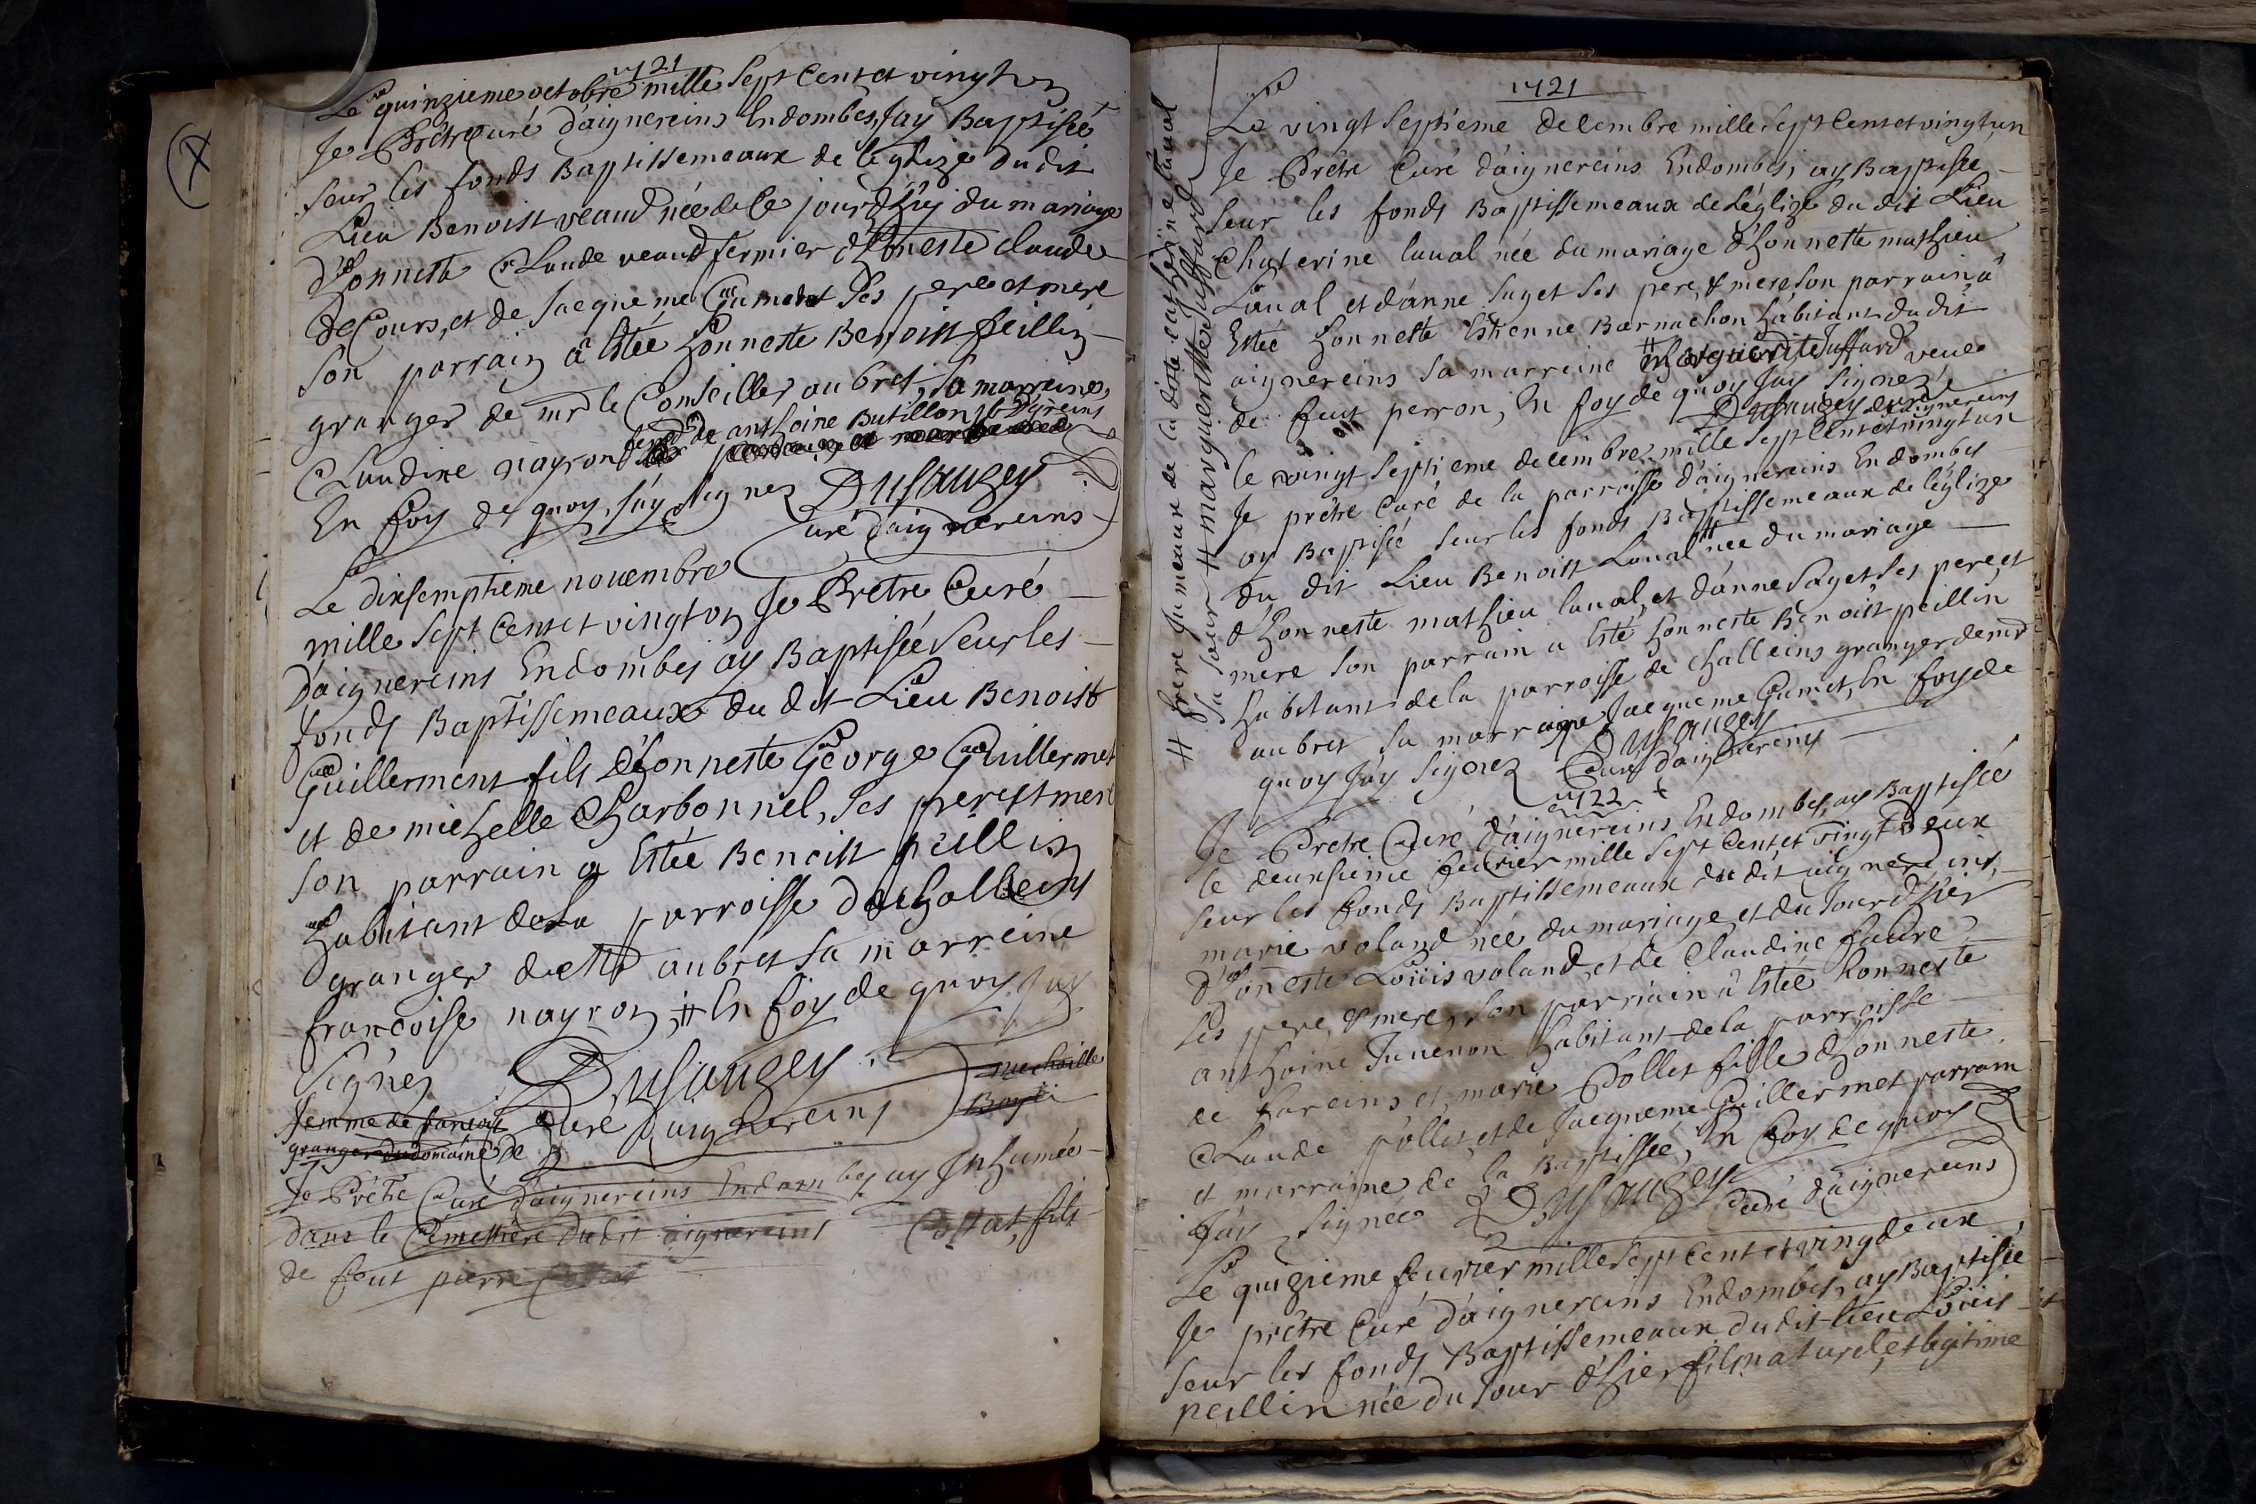 1721
Le quinzieme octobre mille Sept Cent et vingt un
Je Prêtre Curé d'aignereins Endombes, Jay Baptisée
seur les fonds Baptissemeaux de léglize du dit
Lieu Benoist veaud née de Ce jourdhuy du mariage
d'honneste Claude veaud fermier d'honeste claude
de Cours, et de Jacqueme Gumet Ses pere et mere
Son parrain â Estée honneste Benoist peillin
granger de mr le Conseiller aubret, Sa marreine,
Claudine nayrond feme de anthoine Butillon
En foy de quoy, Jáy Signez Dusauzey
Curé d'aignereins
Le dixsemptieme novembre
mille Sept Cent et vingt un Je Prêtre Curé
d'aignereins Endombes ay Baptisée Seur les
fonds Baptissemeaux du dit Lieu Benoist
Guillerment fils d'honneste George Guillermet
et de michelle Charbonnel, Ses pere et mere
Son parrain a Estée Benoist peillin
habitant de La parroisse de challeins
granger de Mr aubret Sa marreine
francoise nayron, # En foy de quoy Jay
Signez Dusauzey
Curé d'aignereins
femme de
granger du domaine de
Je Prêtre Curé d'aignereins Endombes ay Inhumée
dans le Cemettiere du dit aignereins Costat, fils
de feut pierre Costat
1721
Le vingt Septieme decembre mille Sept Cent et vingt un
Je Prêtre Curé d'aignereins Endombes, ay Baptisée
Seur les fonds Baptissemeaux de Léglize du dit Lieu
Chaterine laval née du mariage d'honnette mathieu
Laval et d'anne Saget Ses pere, & mere Son parrain, â
Estée honneste Estienne Barnachon habitant du dit
aignereins Sa marreine # marguerite Juffard veuve
de feut perron, En foy de quoy Jay Signez,
Dusauzey curé d'aignereins
le vingt Septieme decembre mille Sept Cent et vingt un
Je prêtre Curé de la parroisse d'aignereins Endombes
ay Baptisée Seur les fonds Baptissemeaux de léglize
du dit Lieu Benoist Laval # née du mariage
d'honneste mathieu laval, et d'anne Saget Ses pere et
mere Son parrain a Esté honneste Benoist peillin
habitant de la parroisse de challeins granger de mr
aubret Sa marraine Jacqueme Gumet, En foy de
quoy Jáy Signez Dusauzey
Curé d'aignereins
# frere Jumeaux de la ditte catherine laval
Sa Sœur # marguerite Juffard
1722
Je Prêtre Curé d'aignereins Endombes, ay Baptisée
le deuxsieme fevrier mille Sept Cent et vingt Deux
Seur les fonds Baptissemeaux du dit aignereins,
marie voland née du mariage, et du Jourd'hier
d'honeste Loüis voland, et de Claudine favre
Ses pere, & mere, Son parriain â Estée honneste
anthoine Junenon habitant de la parroisse
de fareins, et marie Pollet fille d'honneste
Claude pollet, et de Jacqueme Guillermet parrain
et marraine de la Baptissée, En foy de quoy
Jáy Signée Dusauzey Curé d'aignereins
Le quizieme fevrier mille Sept Cent et ving deux,
Je prêtre Curé d'aignereins Endombes, ay Baptisée
Seur les fonds Baptissemeaux du dit lieu Loüis
peillin née du Jour d'hier fils naturel, et legitime